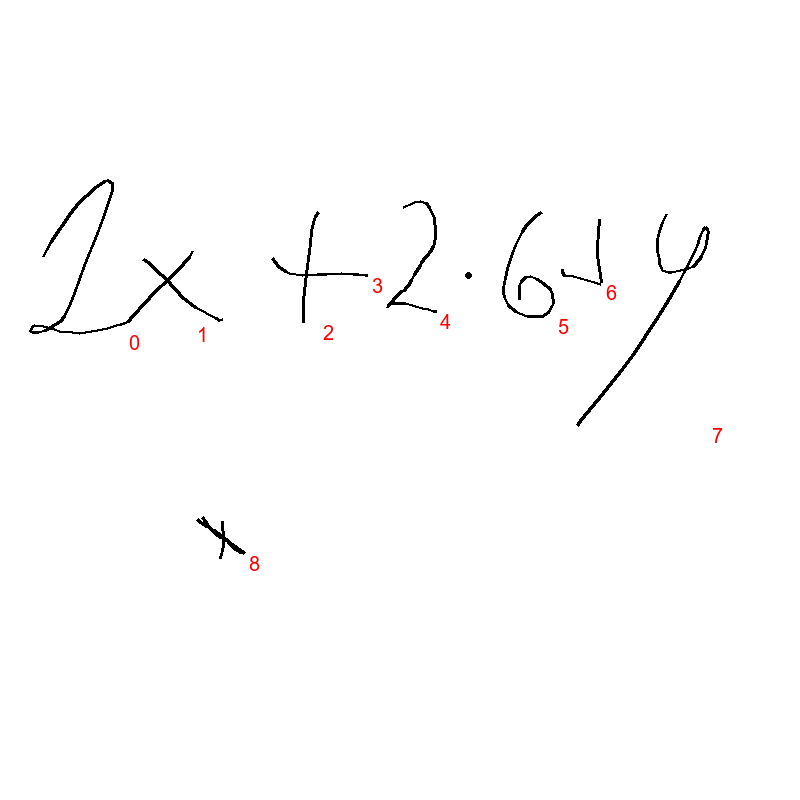 2x + 2.6 y
0 1 2 3 4 5 6
7
x 8